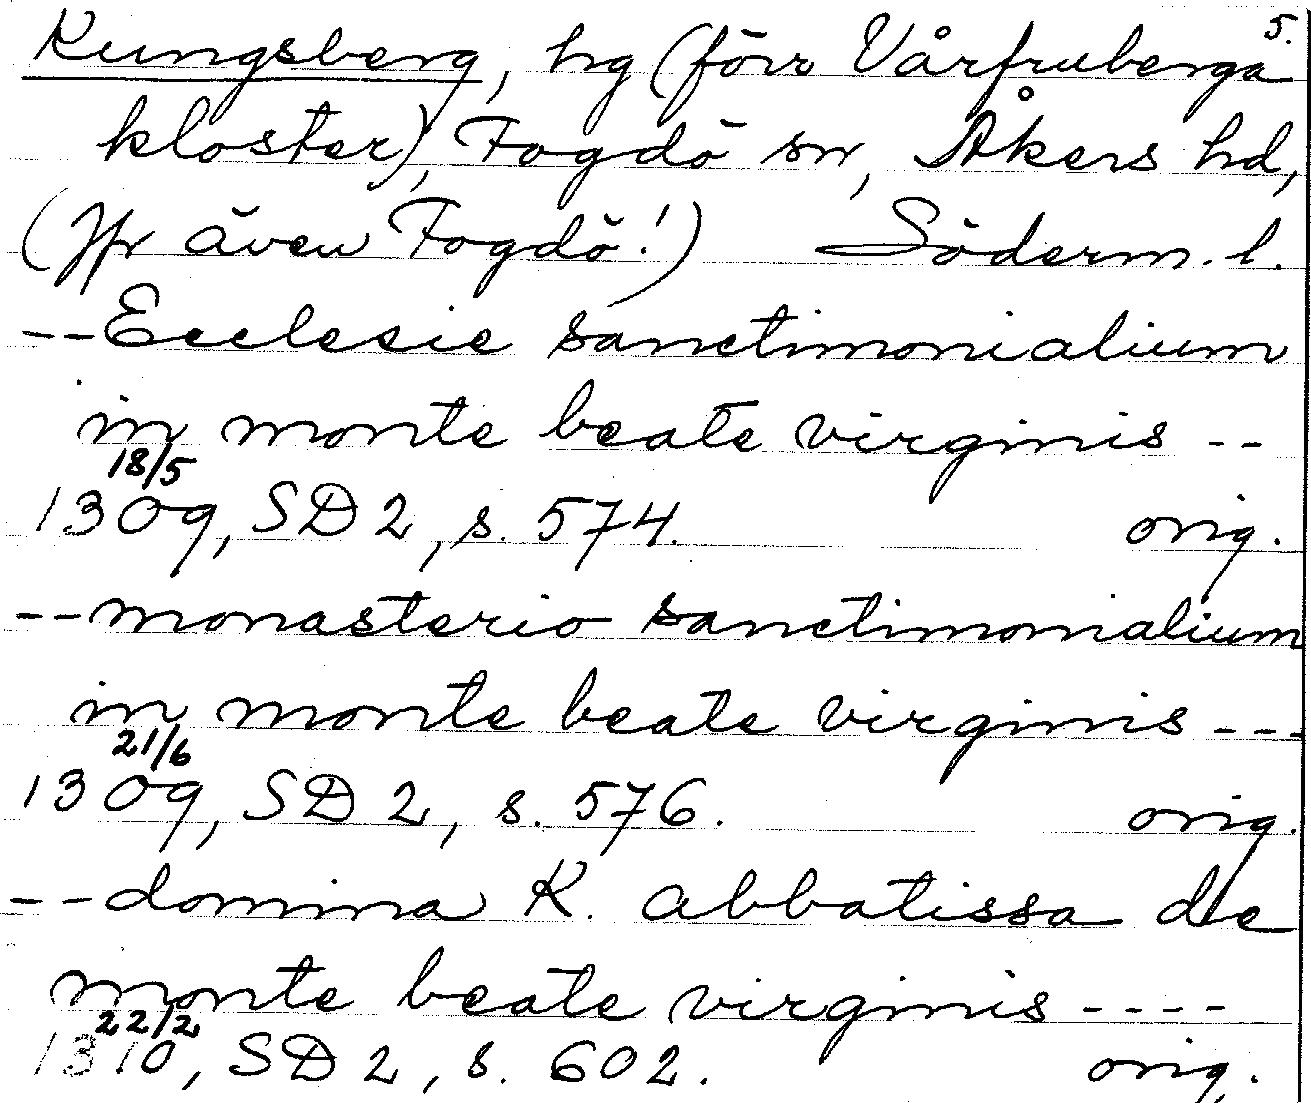 5.
Kungsberg, hg (förr Vårfruberga
kloster), Fogdö sn, Åkers hd,
(Jfr även Fogdö!) Söderm. l.
--Ecclesie sanctimonialium
in monte beate virginis --
18/5
1309, SD 2, s. 574. orig.
--monasterio sanctimonialium
in monte beate virginis ---
21/6
1309, SD 2, s. 576. orig.
--domina K. abbatissa de
monte beate virginis ----
22/2
1310, SD 2, s. 602. orig.